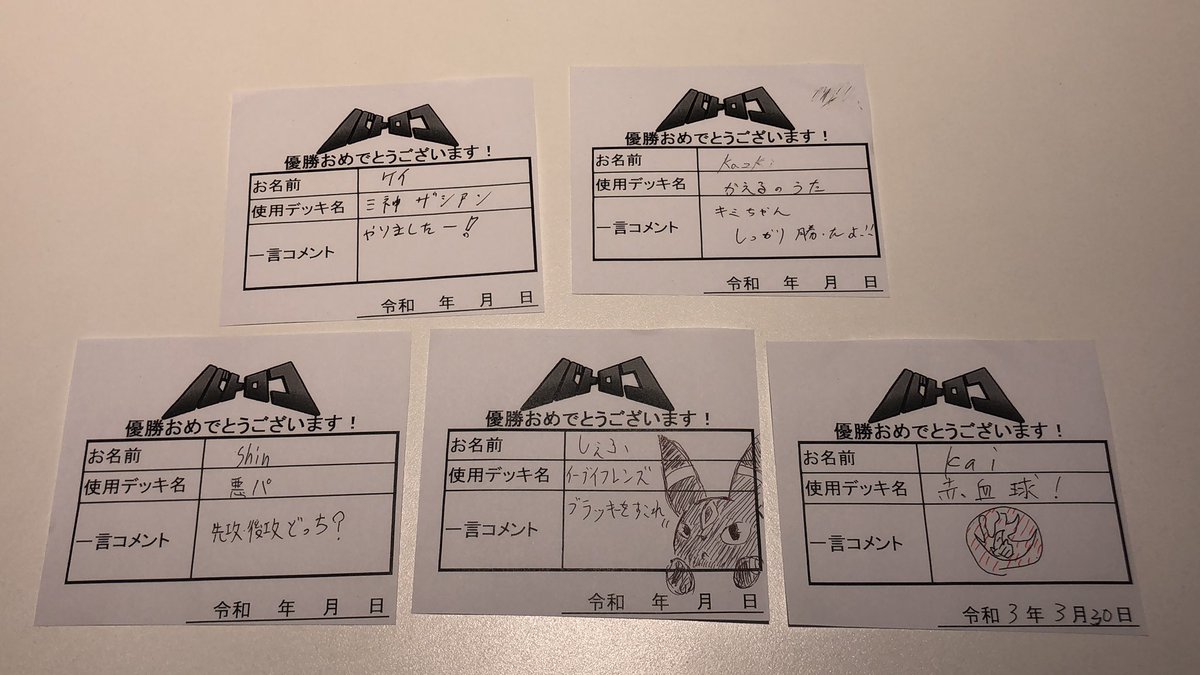 バトロコ
優勝おめでとうございます！
お名前 ケイ
使用デッキ名 三神 ザシアン
一言コメント やりましたー!
令和 年 月 日
バトロコ
優勝おめでとうございます！
お名前
使用デッキ名 かえるのうた
一言コメント キミちゃん
しっかり勝ったよ!!
令和 年 月 日
バトロコ
優勝おめでとうございます！
お名前 Shin
使用デッキ名 悪パ
一言コメント 先攻・後攻どっち?
令和 年 月 日
バトロコ
優勝おめでとうございます！
お名前 しぇふ
使用デッキ名 イーブイフレンズ
一言コメント ブラッキーをすこれ
令和 年 月 日
バトロコ
優勝おめでとうございます！
お名前 kai
使用デッキ名 赤血球!
一言コメント
令和 3年 3月30日